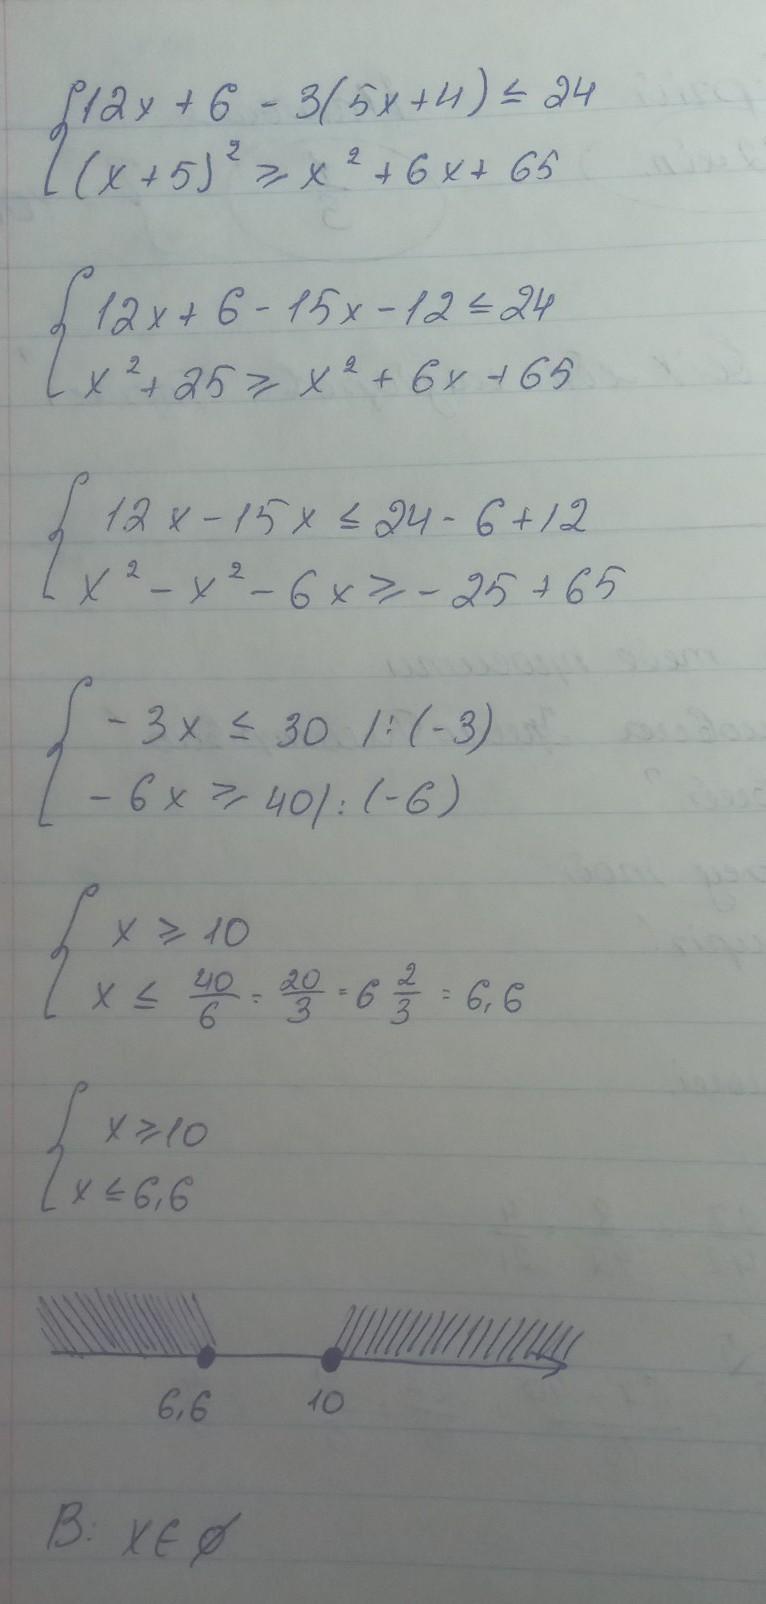 12x + 6 - 3(5x+4) ≤ 24
(x+5)² ≥ x² + 6x + 65
12x + 6 - 15x - 12 ≤ 24
x² + 25 ≥ x² + 6x + 65
12x - 15x ≤ 24 - 6 + 12
x² - x² - 6x ≥ - 25 + 65
- 3x ≤ 30 /:(-3)
- 6x ≥ 40/:(-6)
x ≥ 10
x ≤ 40/6 = 20/3 = 6 2/3 = 6,6
x ≥ 10
x ≤ 6,6
6,6 10
В: x ∈ ∅